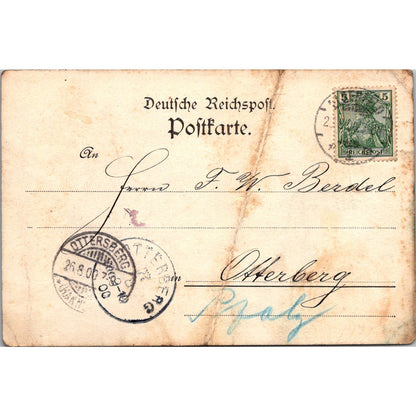 5 5
REICHSPOST
Deutsche Reichspost.
Postkarte.
An
Herrn F. W. Berdel
in
OTTERSBERG
26.8.00
OTTERBERG
00
Otterberg
Pfalz